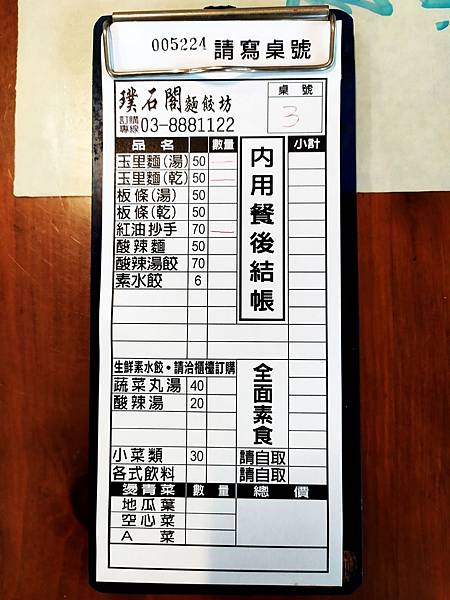 005224 請寫桌號
璞石閣麵餃坊
訂購專線 03-8881122
桌號
3
品名 數量 小計
玉里麵(湯) 50 一
玉里麵(乾) 50 一
板條(湯) 50
板條(乾) 50
紅油抄手 70 一
酸辣麵 50
酸辣湯餃 70
素水餃 6
內用餐後結帳
生鮮素水餃·請洽櫃檯訂購
蔬菜丸湯 40
酸辣湯 20
全面素食
小菜類 30 請自取
各式飲料 請自取
燙青菜 數量 總價
地瓜葉
空心菜
A菜